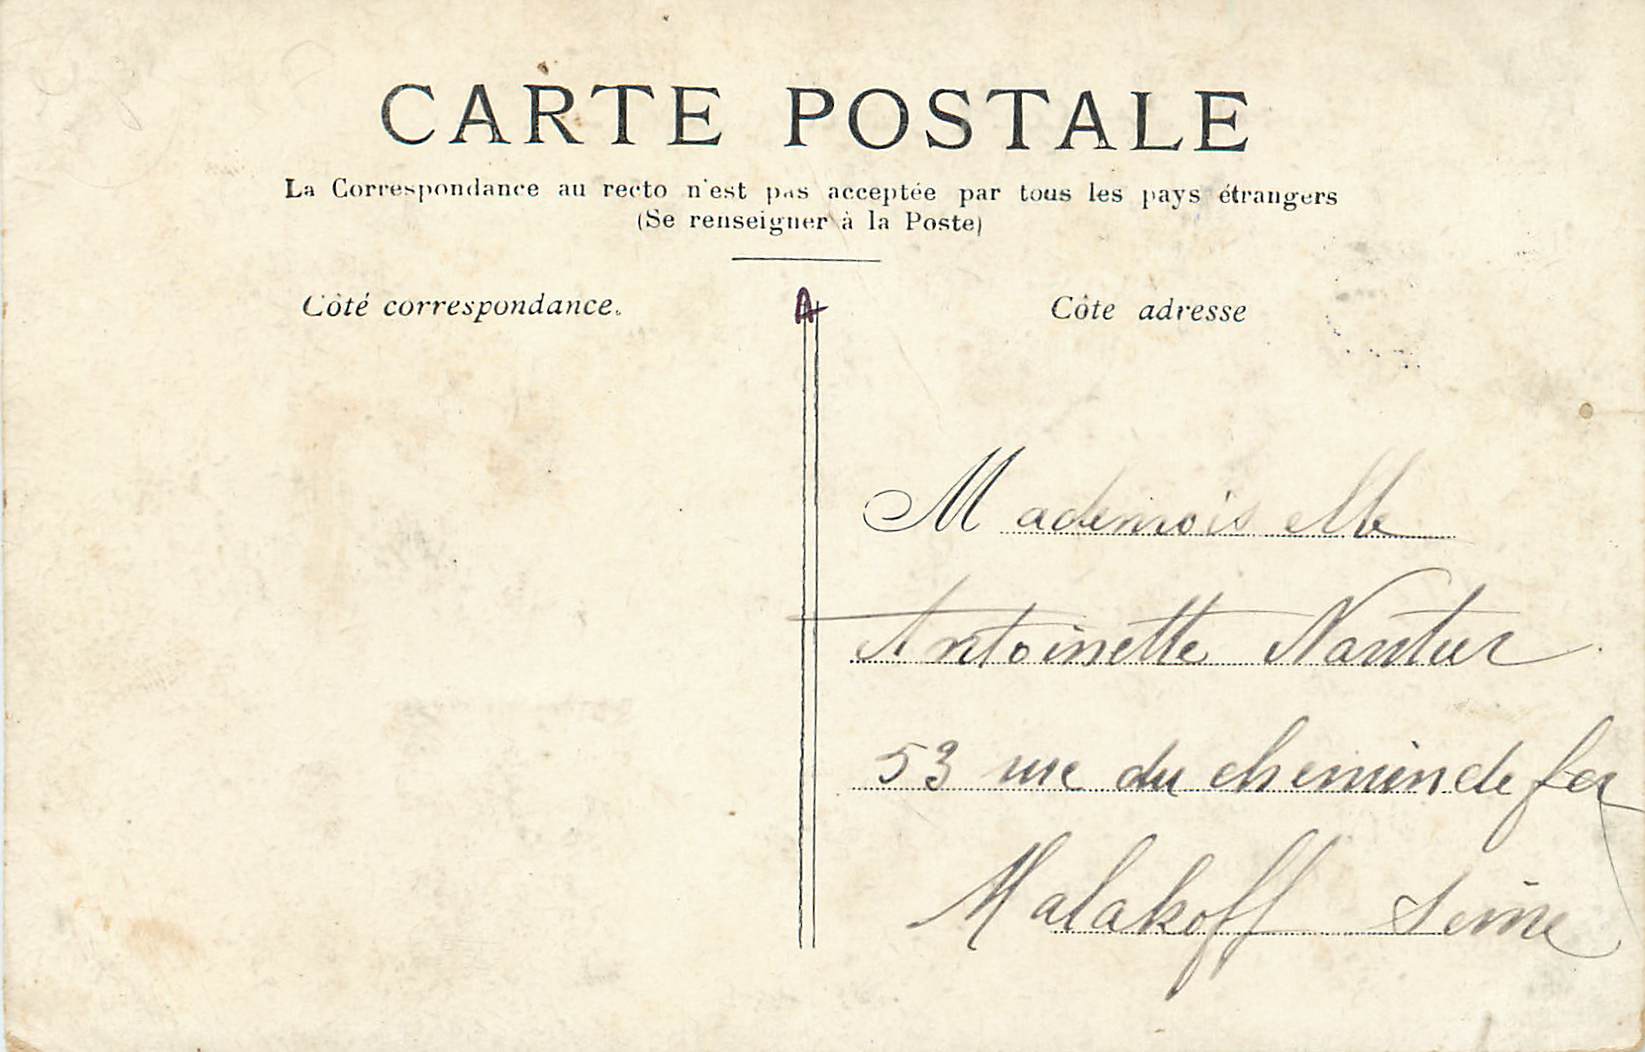 CARTE POSTALE
La Correspondance au recto n'est pas acceptée par tous les pays étrangers
(Se renseigner à la Poste)
Côté correspondance.
A
Côte adresse
Mademoiselle
Antoinette Nantier
53 rue du chemin de fer
Malakoff Seine